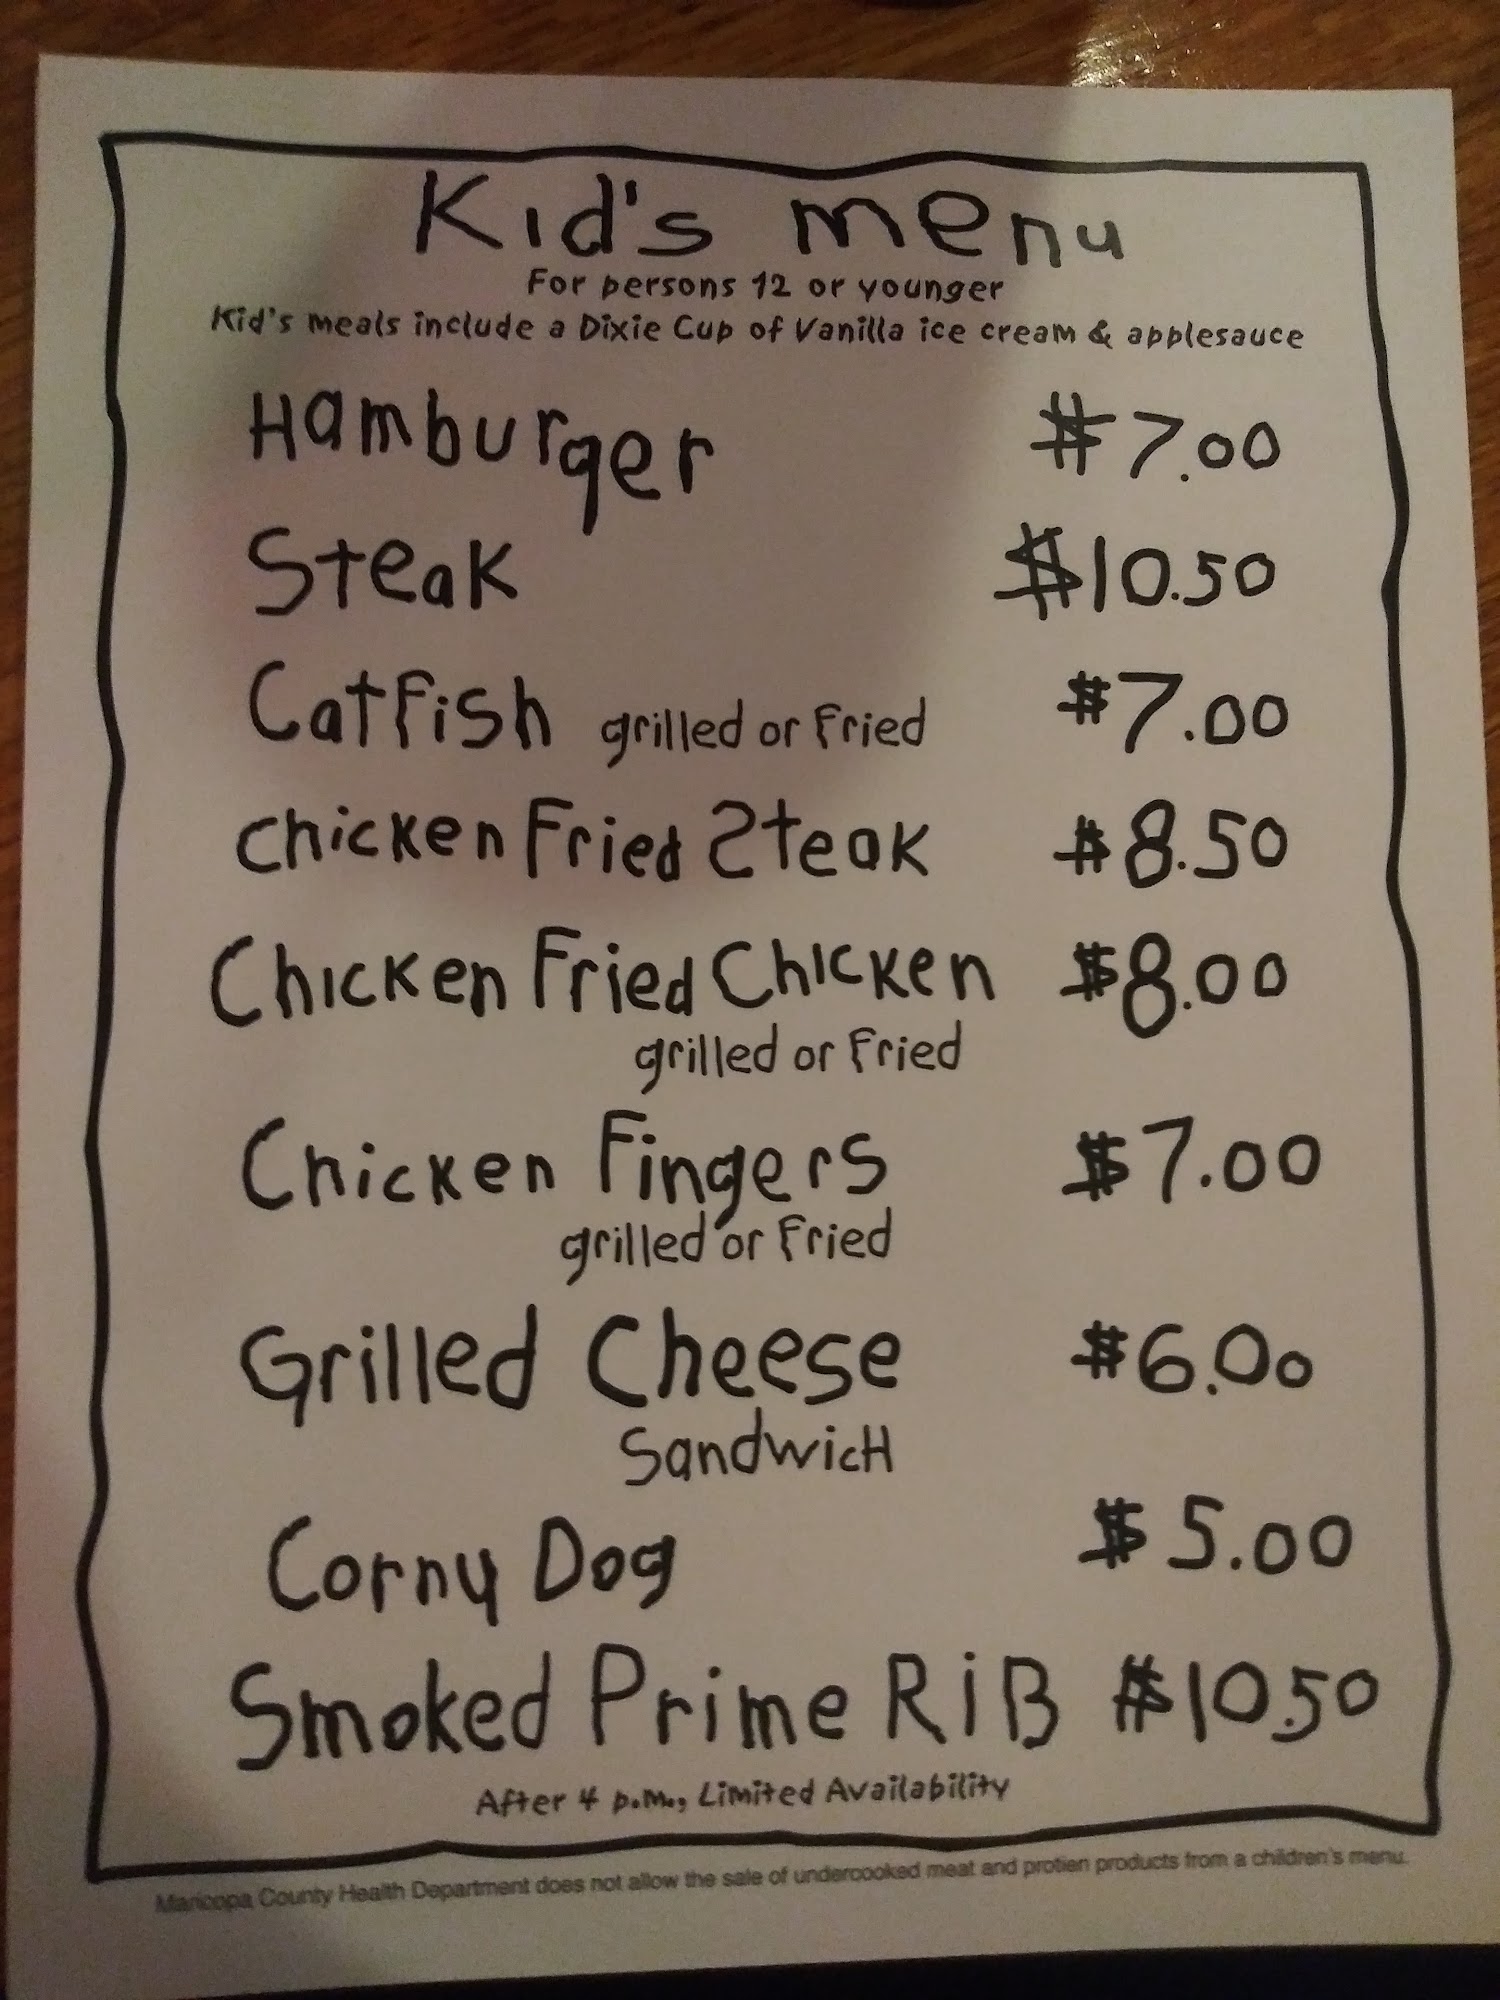 Kid's menu
For persons 12 or younger
Kid's meals include a Dixie Cup of Vanilla ice cream & applesauce
Hamburger $7.00
Steak $10.50
Catfish grilled or Fried $7.00
Chicken Fried Steak $8.50
Chicken Fried Chicken $8.00
grilled or Fried
Chicken Fingers $7.00
grilled or Fried
Grilled Cheese $6.00
SandwicH
Corny Dog $5.00
Smoked Prime RiB $10.50
After 4 p.m., Limited Availability
Maricopa County Health Department does not allow the sale of undercooked meat and protien products from a children's menu.